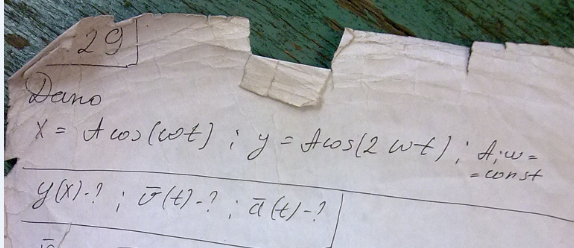 29
Дано
x = A cos(ωt) ; y = A cos(2 ωt) ; A; ω =
= const
y(x) - ? ; v̄(t) - ? ; ā(t) - ?